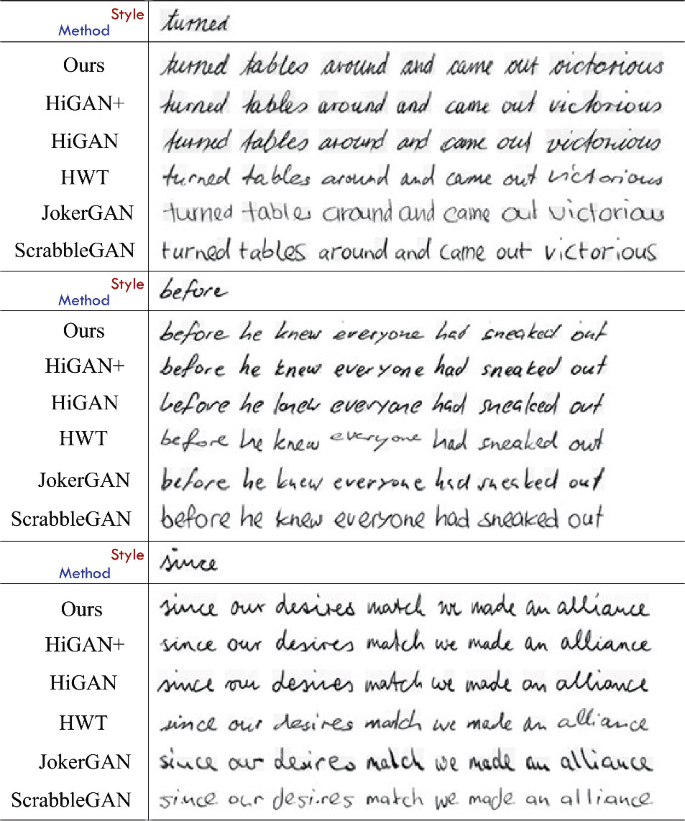 Style
Method turned
Ours turned tables around and came out victorious
HiGAN+ turned tables around and came out victorious
HiGAN turned tables around and came out victorious
HWT turned tables around and came out victorious
JokerGAN turned tables around and came out victorious
ScrabbleGAN turned tables around and came out victorious
Style
Method before
Ours before he knew everyone had sneaked out
HiGAN+ before he knew everyone had sneaked out
HiGAN before he knew everyone had sneaked out
HWT before he knew everyone had sneaked out
JokerGAN before he knew everyone had sneaked out
ScrabbleGAN before he knew everyone had sneaked out
Style
Method since
Ours since our desires match we made an alliance
HiGAN+ since our desires match we made an alliance
HiGAN since our desires match we made an alliance
HWT since our desires match we made an alliance
JokerGAN since our desires match we made an alliance
ScrabbleGAN since our desires match we made an alliance